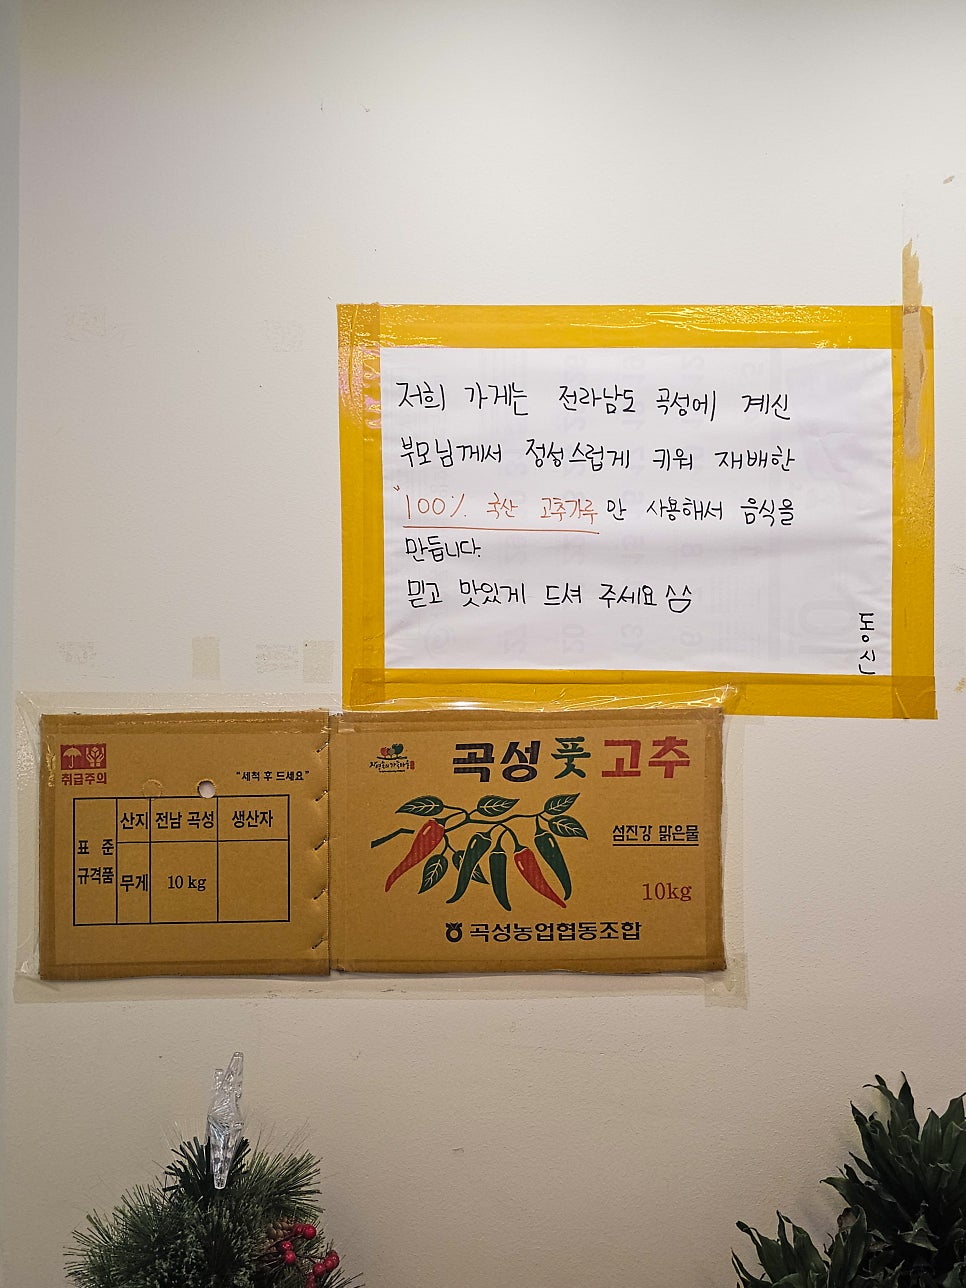 저희 가게는 전라남도 곡성에 계신
부모님께서 정성스럽게 키워 재배한
"100% 국산 고추가루 만 사용해서 음식을
만듭니다.
믿고 맛있게 드셔 주세요 ^^
동신
취급주의
"세척 후 드세요"
표준규격품
산지 전남 곡성 생산자
무게 10 kg
곡성 풋고추
섬진강 맑은물
10kg
곡성농업협동조합